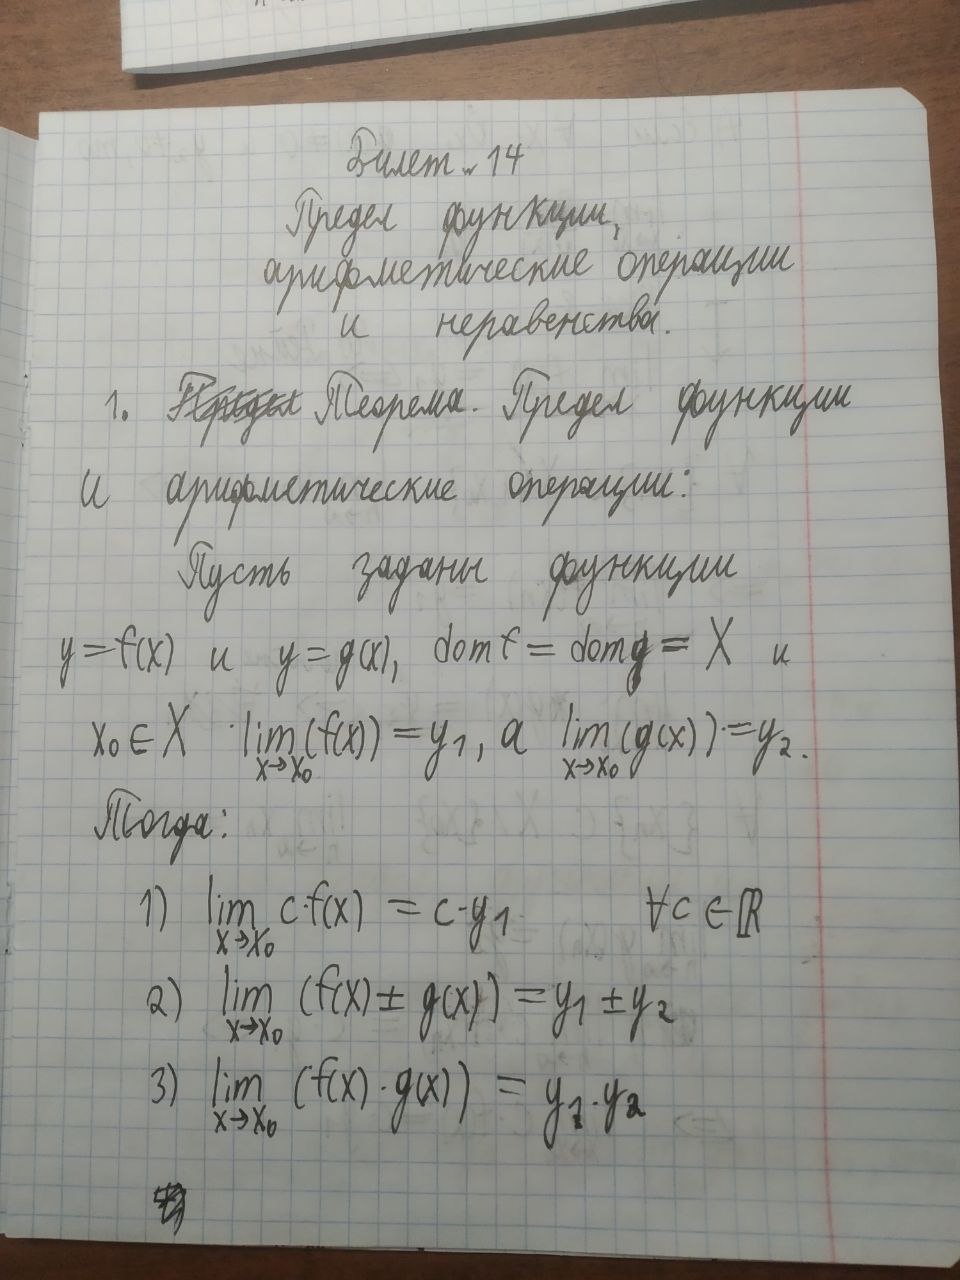 Билет № 14
Предел функции,
арифметические операции
и неравенства.
1. Теорема. Предел функции
и арифметические операции:
Пусть заданы функции
y = f(x) и y = g(x), dom f = dom g = X и
x₀ ∈ X lim(f(x)) = y₁, а lim(g(x)) = y₂.
x→x₀ x→x₀
Тогда:
1) lim c·f(x) = c·y₁ ∀c ∈ ℝ
x→x₀
2) lim (f(x) ± g(x)) = y₁ ± y₂
x→x₀
3) lim (f(x) · g(x)) = y₁ · y₂
x→x₀